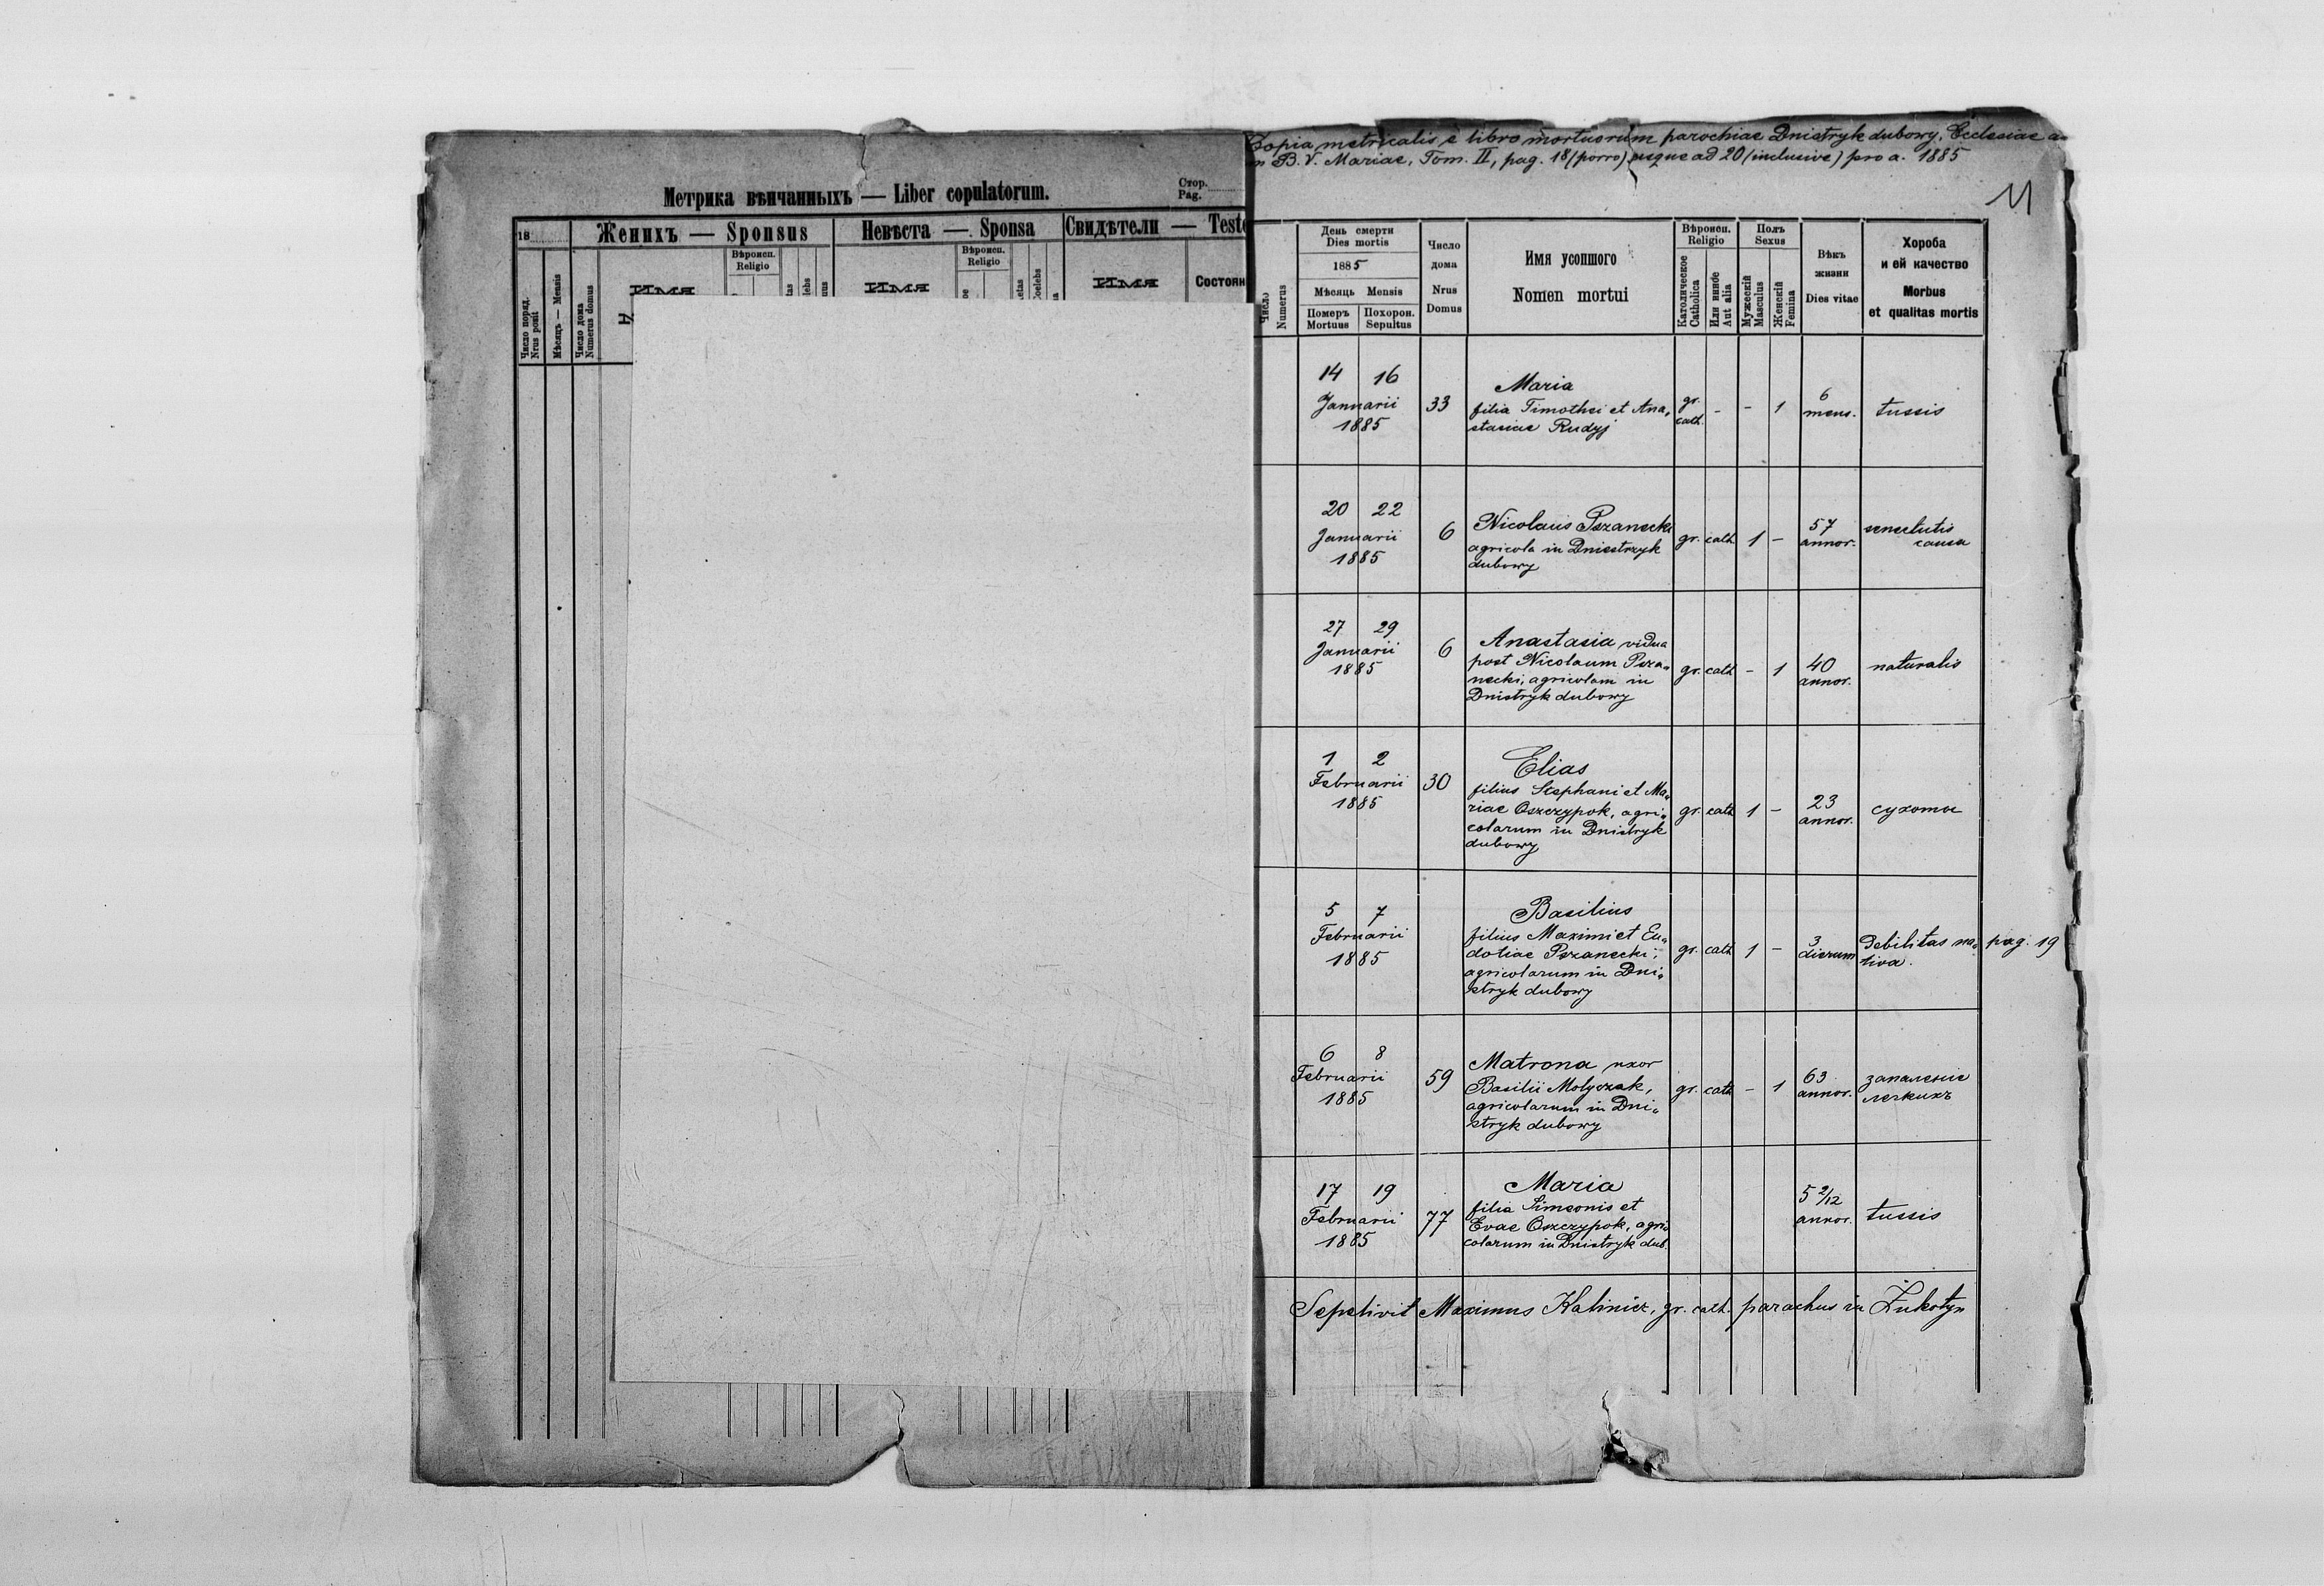 Copia metricalis e libro mortuorum parochiae Dnistryk dubowy, Ecclesiae
B. V. Mariae, Tom. II, pag. 18 (porro) usque ad 20 (inclusive) pro a. 1885
11
Метрика вѣнчанныхъ — Liber copulatorum.
Стор.
Pag.
18
Женихъ — Sponsus
Невѣста — Sponsa
Свидѣтели — Teste
Число поряд.
Nrus posit
Мѣсяць — Mensis
Число дома
Numerus domus
Имя
Вѣроисп.
Religio
Имя
Вѣроисп.
Religio
Имя
Состоян
Число
Numerus
День смерти
Dies mortis
1885
Мѣсяць Mensis
Померъ
Mortuus
Похорон.
Sepultus
Число
дома
Nrus
Domus
Имя усопшого
Nomen mortui
Вѣроисп.
Religio
Католическое
Catholica
Или иное
Aut alia
Полъ
Sexus
Мужескій
Masculus
Женскій
Femina
Вѣкъ
жизни
Dies vitae
Хороба
и ей качество
Morbus
et qualitas mortis
14 16
Januarii
1885
33
Maria
filia Timothei et Ana-
stasiae Rudyj
gr.
cath.
- - 1
6
mens.
tussis
20 22
Januarii
1885
6
Nicolaus Pszanecki
agricola in Dniestrzyk
dubowy
gr. cath 1 -
57
annor.
senectutis
causa
27 29
Januarii
1885
6
Anastasia vidua
post Nicolaum Psza-
necki, agricolam in
Dnistryk dubowy
gr. cath - 1
40
annor.
naturalis
1 2
Februarii
1885
30
Elias
filius Stephani et Ma-
riae Oszczypok, agri-
colarum in Dnistryk
dubowy
gr. cath 1 -
23
annor.
сухоты
5 7
Februarii
1885
Basilius
filius Maximi et Eu-
dotiae Pszanecki,
agricolarum in Dni-
stryk dubowy
gr. cath 1 -
3
dierum
debilitas na-
tiva.
pag. 19
6 8
Februarii
1885
59
Matrona uxor
Basilii Molyczak,
agricolarum in Dni-
stryk dubowy
gr. cath - 1
63
annor.
запаленіе
легкихъ
17 19
Februarii
1885
77
Maria
filia Simeonis et
Evae Oszczypok, agri-
colarum in Dnistryk dub.
5 2/12
annor.
tussis
Sepelivit Maximus Kalinicz, gr. cath. parochus in Żukotyn